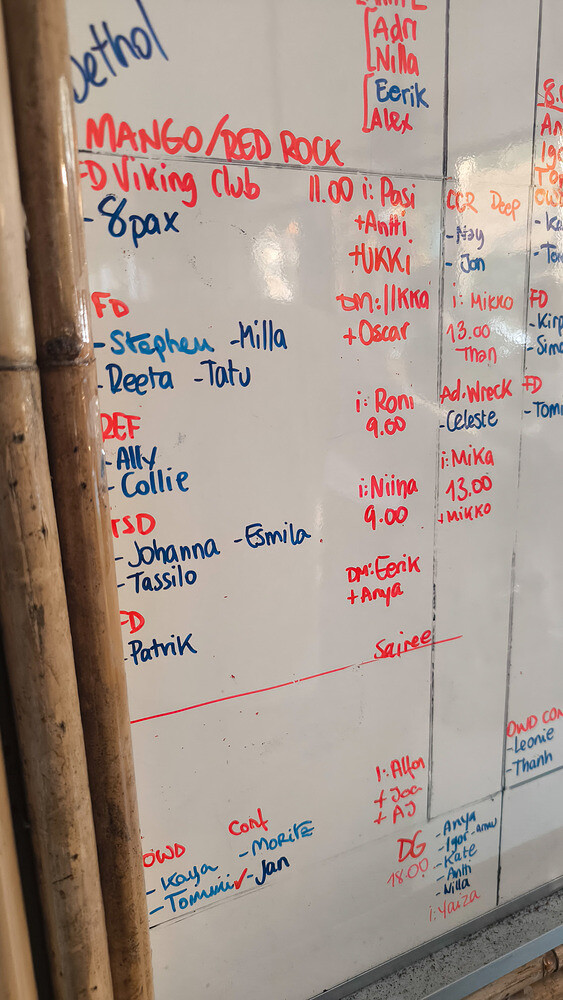 Adri
Nilla
Eerik
Alex
MANGO/RED ROCK
FD Viking Club 11.00 i: Pasi
-8pax +Antti
+UKKi
FD DM: Ilkka
-Stephen -Milla +Oscar
-Reeta -Tatu
REF i: Roni
-Ally 9.00
-Collie
TSD i: Niina
-Johanna -Esmila 9.00
-Tassilo
FD DM: Eerik
-Patrik +Anya
Sairee
i: Alfon
+ Joa
+ AJ
OWD Conf
-Kaya -Moritz
-Tommi ✓ -Jan
CCR Deep
-Nay
-Jon
i: Mikko
13.00
Than
Ad.Wreck
-Celeste
i: Mika
13.00
+Mikko
DG -Anya
18.00 -Igor
-Kate
-Antti
-Nilla
i: Yaiza
FD
FD
OWD CON
-Leonie
-Thanh